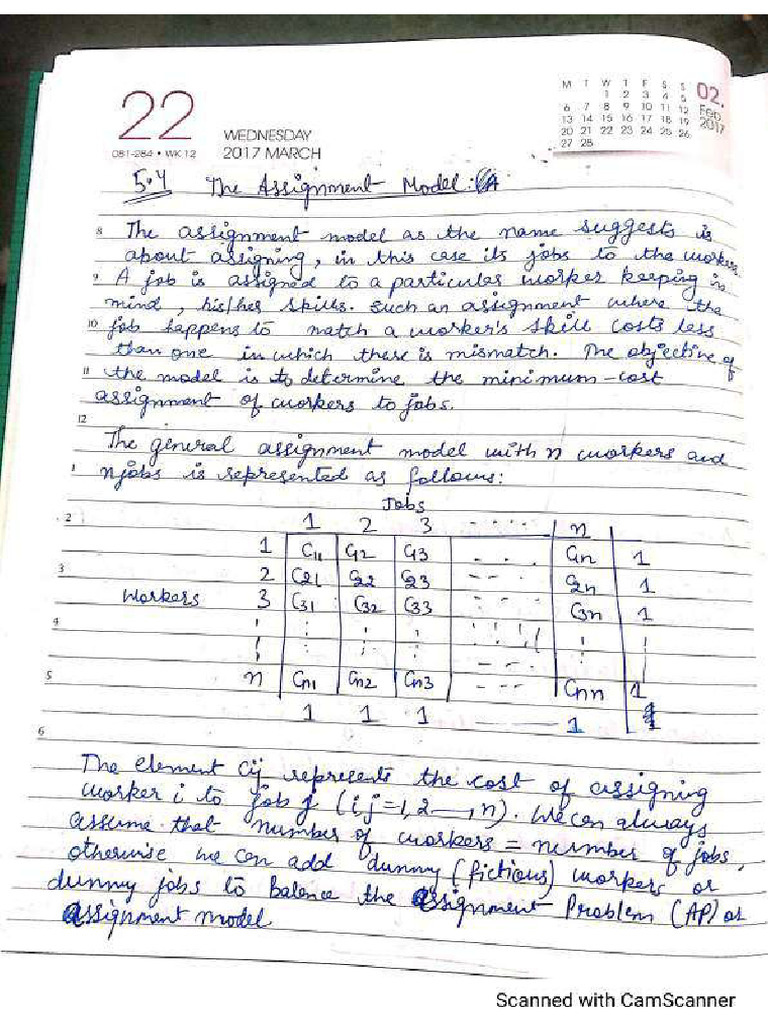 22
WEDNESDAY
081-284 • WK 12
2017 MARCH
M T W T F S S
1 2 3 4 5
6 7 8 9 10 11 12
13 14 15 16 17 18 19
20 21 22 23 24 25 26
27 28
02.
Feb
2017
5.4 The Assignment Model:
8 The assignment model as the name suggests is
about assigning, in this case its jobs to the workers.
9 A job is assigned to a particular worker keeping in
mind, his/her skills. Such an assignment where the
10 job happens to match a worker's skill costs less
than one in which there is mismatch. The objective of
11 the model is to determine the minimum-cost
assignment of workers to jobs.
12
The general assignment model with n workers and
1 n jobs is represented as follows:
Jobs
2 1 2 3 ------ n
1 C11 C12 C13 ... C1n 1
3 2 C21 C22 C23 --- C2n 1
Workers 3 C31 C32 C33 ... C3n 1
4
5 n Cn1 Cn2 Cn3 --- Cnn 1
1 1 1 ------ 1
6
The element cij represents the cost of assigning
worker i to job j (i,j=1,2---,n). We can always
assume that number of workers = number of jobs,
otherwise we can add dummy (fictious) workers or
dummy jobs to balance the Assignment Problem (AP) or
Assignment model
Scanned with CamScanner